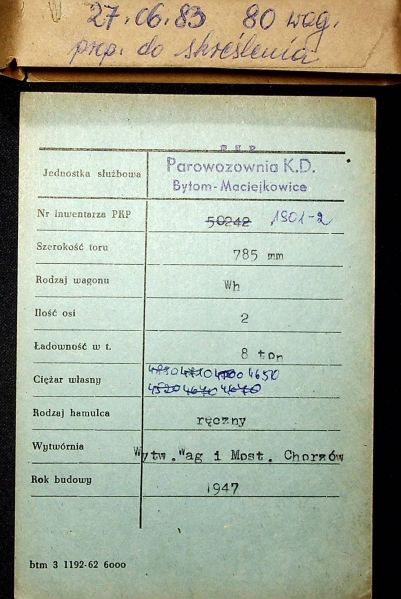 27.06.83 80 wag.
prp. do skreślenia
P K P
Jednostka służbowa Parowozownia K.D.
Bytom-Maciejkowice
Nr inwentarza PKP 50242 1901-2
Szerokość toru 785 mm
Rodzaj wagonu Wh
Ilość osi 2
Ładowność w t. 8 ton
4650
Ciężar własny
Rodzaj hamulca ręczny
Wytwórnia Wytw.Wag i Most. Chorzów
Rok budowy 1947
btm 3 1192-62 6000